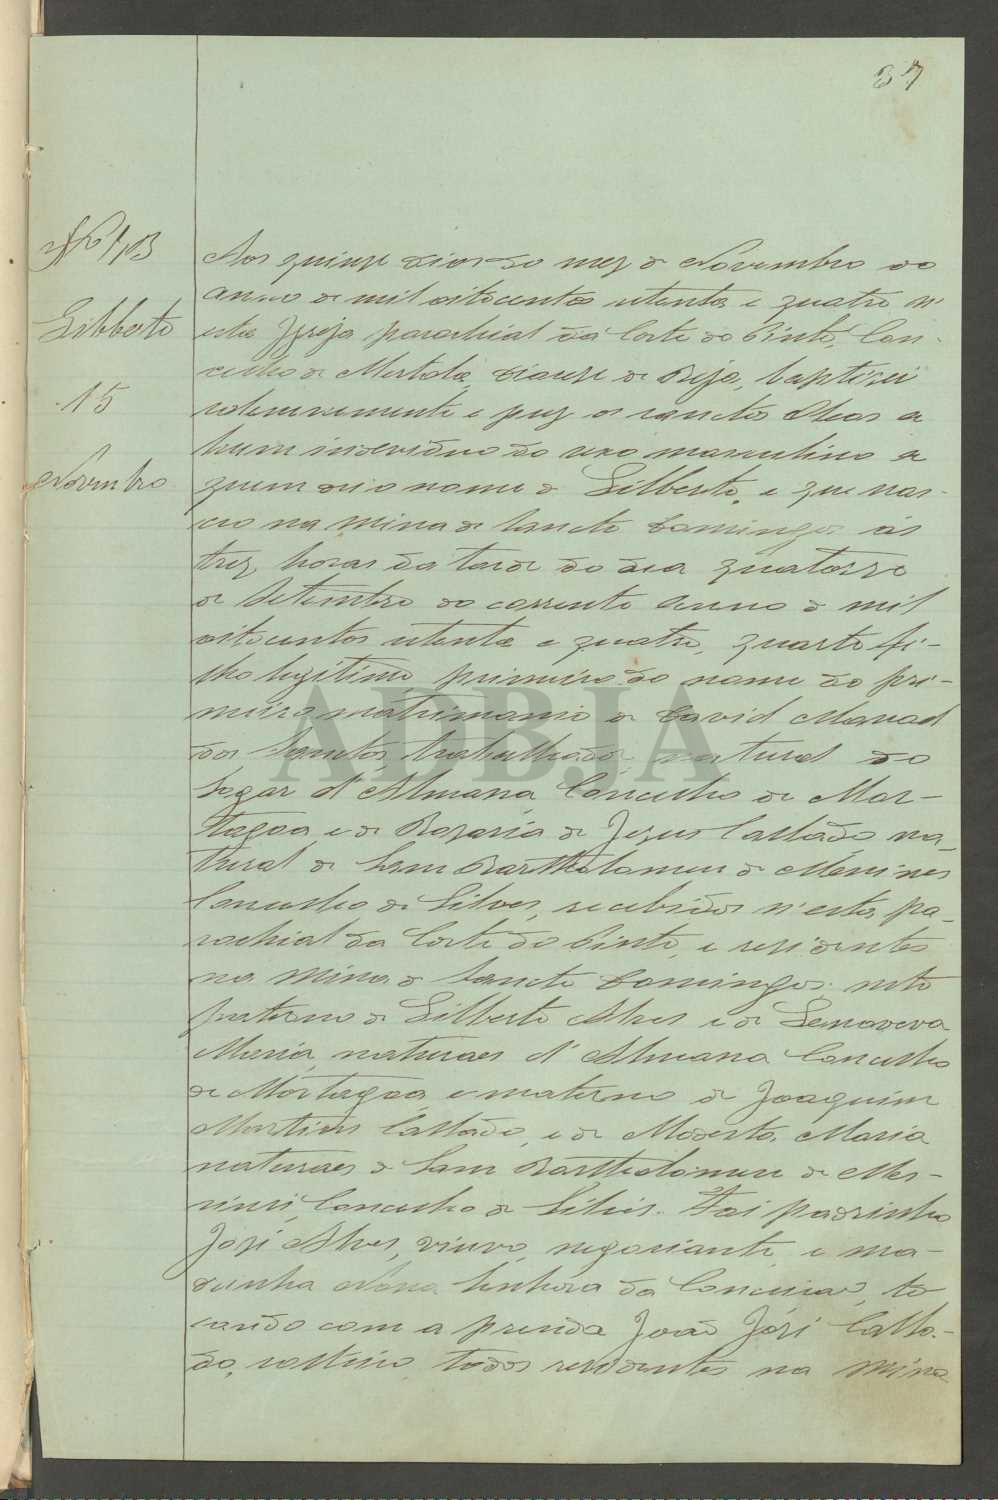 37
Nº 73
Gilberto
15
Novembro
Aos quinze dias do mez de Novembro do
anno de mil oitocentos oitenta e quatro n'
esta Igreja parochial da Corte do Pinto, Con-
celho de Mertola, Diocese de Beja, baptizei
solemnemente e puz os sanctos Oleos a
hum individuo do sexo masculino a
quem dei o nome de Gilberto, e que nas-
ceo na mina de Sancto Domingos ás
trez horas da tarde do dia quatorze
de Setembro do corrente anno de mil
oitocentos oitenta e quatro, quarto fi-
lho legitimo primeiro do nome do pri-
meiro matrimonio de David
dos Sanctos, trabalhador, natural do
logar d'Almaça, Concelho de Mor-
tagoa e de Rozaria de Jezus Callado, na-
tural de Sam Bartholomeu de Messines
Concelho de Silves, recebidos n'esta pa-
rochial da Corte do Pinto, e rezidentes
na mina de Sancto Domingos: neto
paterno de Gilberto Alves e de Genoveva
Maria, naturaes d'Almaça Concelho
de Mortagoa, e materno de Joaquim
Martins Callado, e de Modesta Maria
naturaes de Sam Bartholomeu de Mes-
sines, Concelho de Silves. Foi padrinho
José Alves, viuvo, negociante, e ma-
drinha Nossa Senhora da Conceição, to-
cando com a prenda João José Calla-
do, solteiro, todos residentes na mina
ADBJA